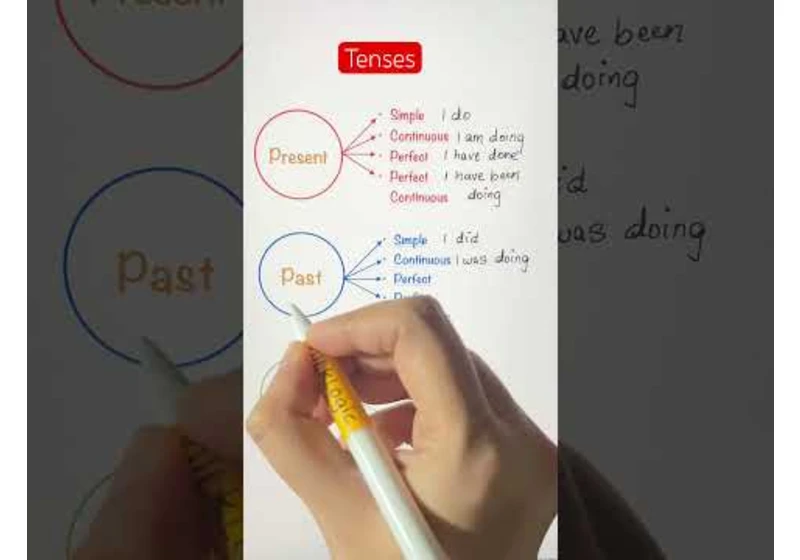 Tenses
Present
Simple I do
Continuous I am doing
Perfect I have done
Perfect I have been
Continuous doing
Past
Simple I did
Continuous I was doing
Perfect
have been
doing
did
was doing
Past
Present